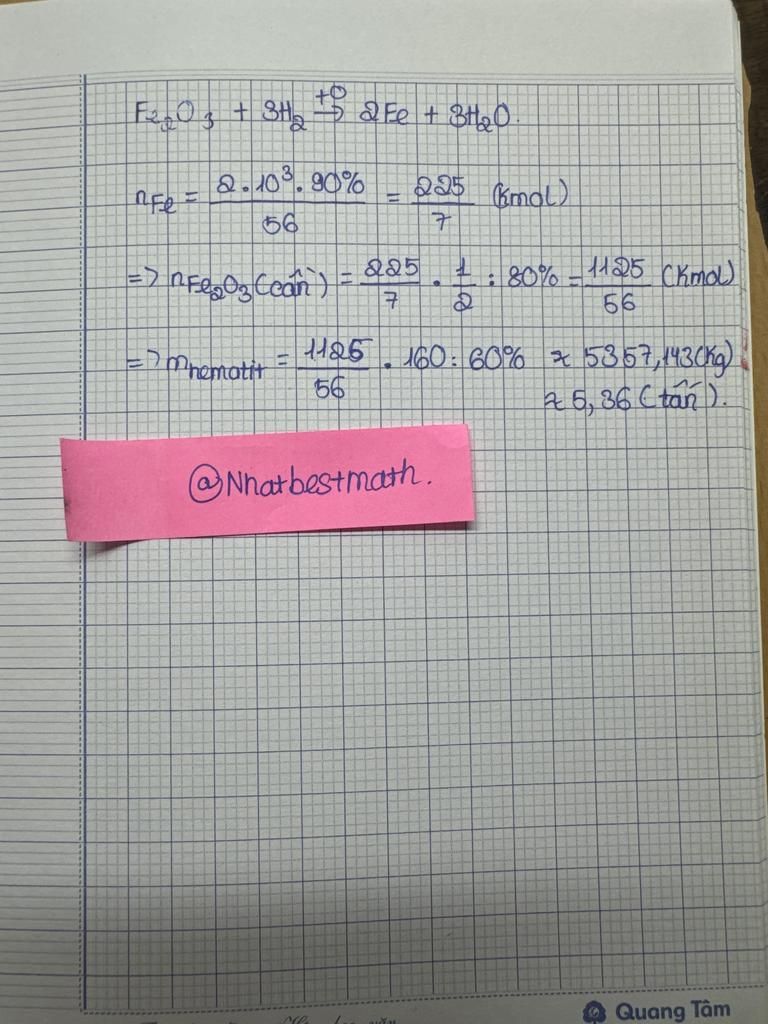 Fe₂O₃ + 3H₂ →(t°) 2Fe + 3H₂O.
nFe = 2.10³.90%/56 = 225/7 (Kmol)
=> nFe₂O₃ (cần) = 225/7 . 1/2 : 80% = 1125/56 (Kmol)
=> mhematit = 1125/56 . 160 : 60% ≈ 5357,143(Kg)
≈ 5,36 (tấn).
@Nhatbestmath.
Quang Tâm